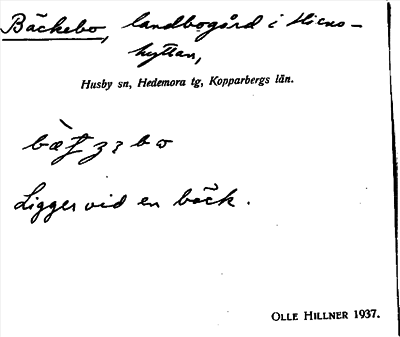 Bäckebo, landbogård i Stiens-
hyttan,
Husby sn, Hedemora tg, Kopparbergs län.
Ligger vid en bäck.
OLLE HILLNER 1937.